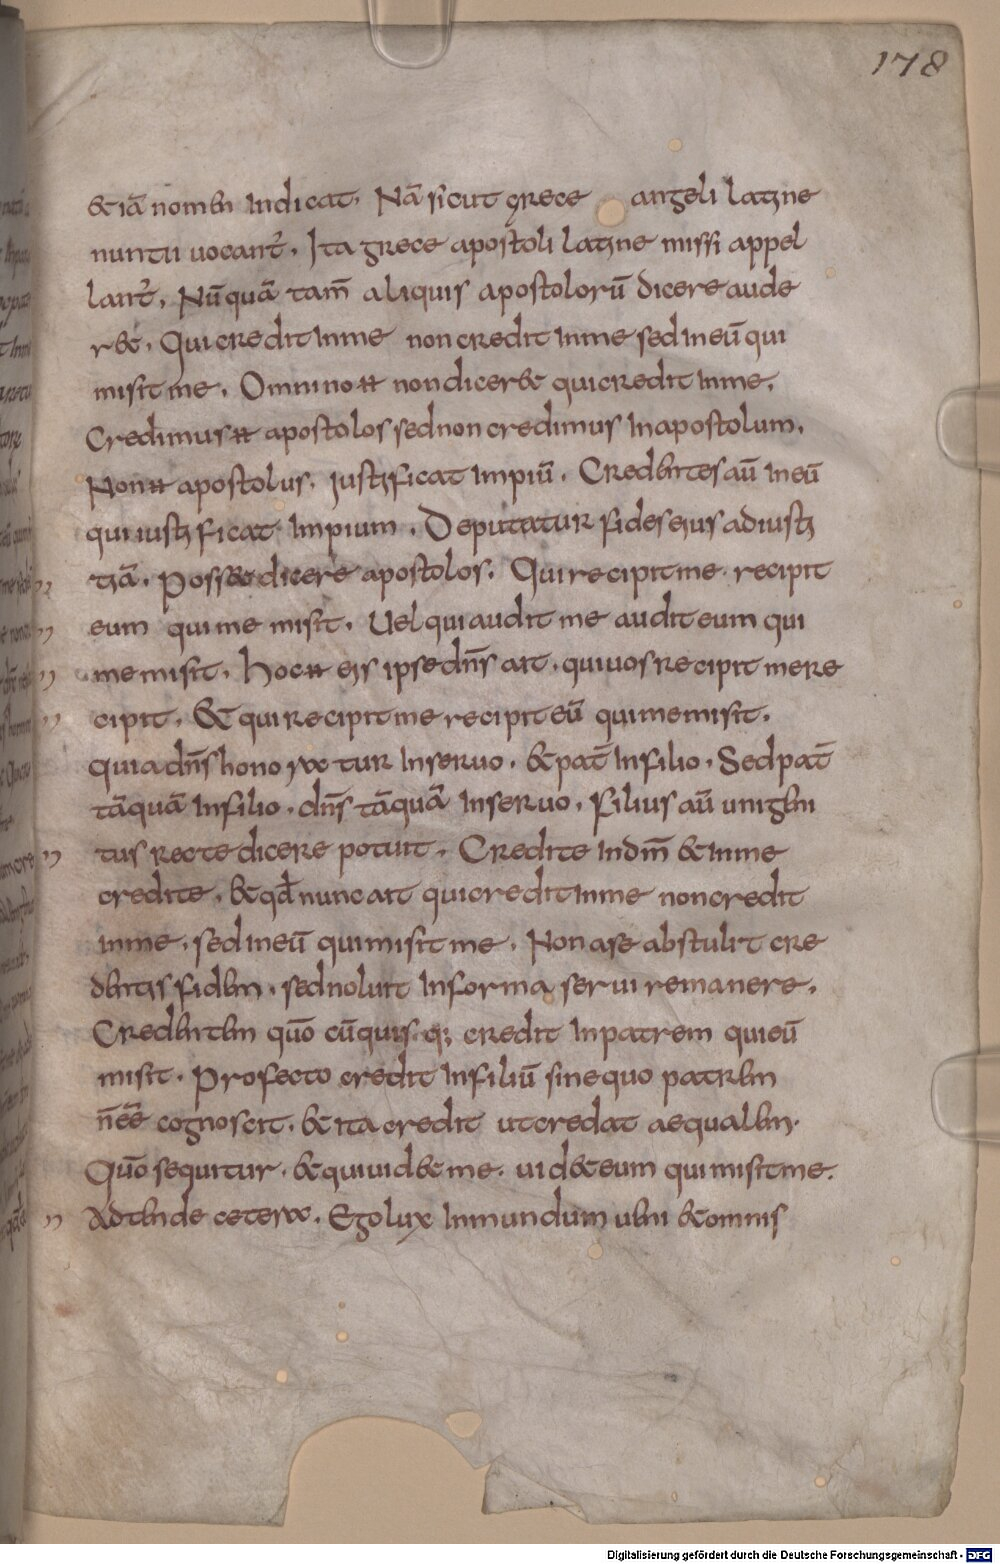 178
&iā nomen indicat. Nā sicut grece angeli latine
nuntii uocant̄. Ita grece apostoli latine missi appel
lant̄. Nūquā tam̄ aliquis apostolorū dicere aude
r&. Qui credit inme non credit inme sed ineū qui
misit me. Omnino ħ non dicer& qui credit inme.
Credimus ħ apostolos sed non credimus in apostolum.
Non ħ apostolus. iustificat impiū. Credentes aū in eū
qui iustificat impium. Deputatur fides eius ad iusti
tiā. Poss& dicere apostolos. Qui recipit me. recipit
eum qui me misit. Uel qui audit me audit eum qui
me misit. hoc ħ eis ipse dn̄s ait. qui uos recipit me re
cipit. & qui recipit me recipit eū qui me misit.
quia dn̄s honoratur in seruo. & pat̄ in filio. Sed pat̄
tāquā in filio. dn̄s tāquā in seruo. Filius aū unigeni
tus recte dicere potuit. Credite in dm̄ & in me
credite. & qd̄ nunc ait qui credit inme non credit
inme. sed in eū qui misit me. Non a se abstulit cre
dentis fidem. sed noluit in forma serui remanere.
Credentem quō cūquis q; credit in patrem qui eū
misit. Profecto credit in filiū sine quo patrem
n̄ e&̄ cognoscit. & ita credit ut credat aequalem.
Quō sequitur. & qui uid& me. uid& eum qui misit me.
Adtende cetera. Ego lux in mundum ueni & omnis
Digitalisierung gefördert durch die Deutsche Forschungsgemeinschaft - DFG